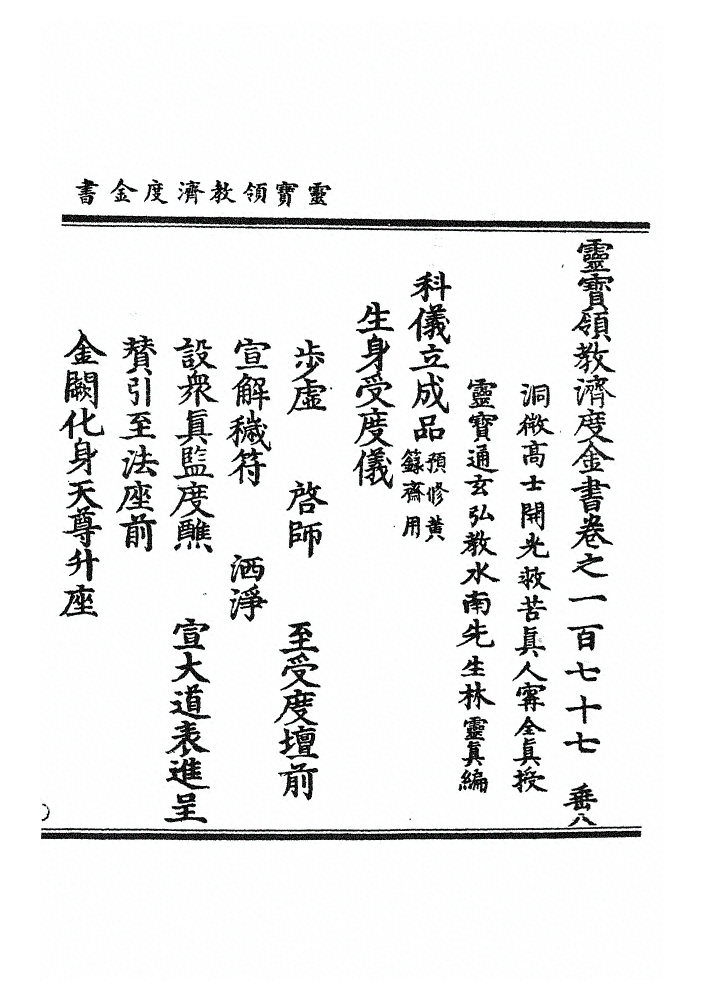 靈寶領教濟度金書
靈寶領教濟度金書卷之一百七十七 垂八
洞微高士開光救苦眞人寗全眞授
靈寶通玄弘教水南先生林靈眞編
科儀立成品預修黃籙齋用
生身受度儀
步虛 啓師 至受度壇前
宣解穢符 洒淨
設衆眞監度醮 宣大道表進呈
賛引至法座前
金闕化身天尊升座